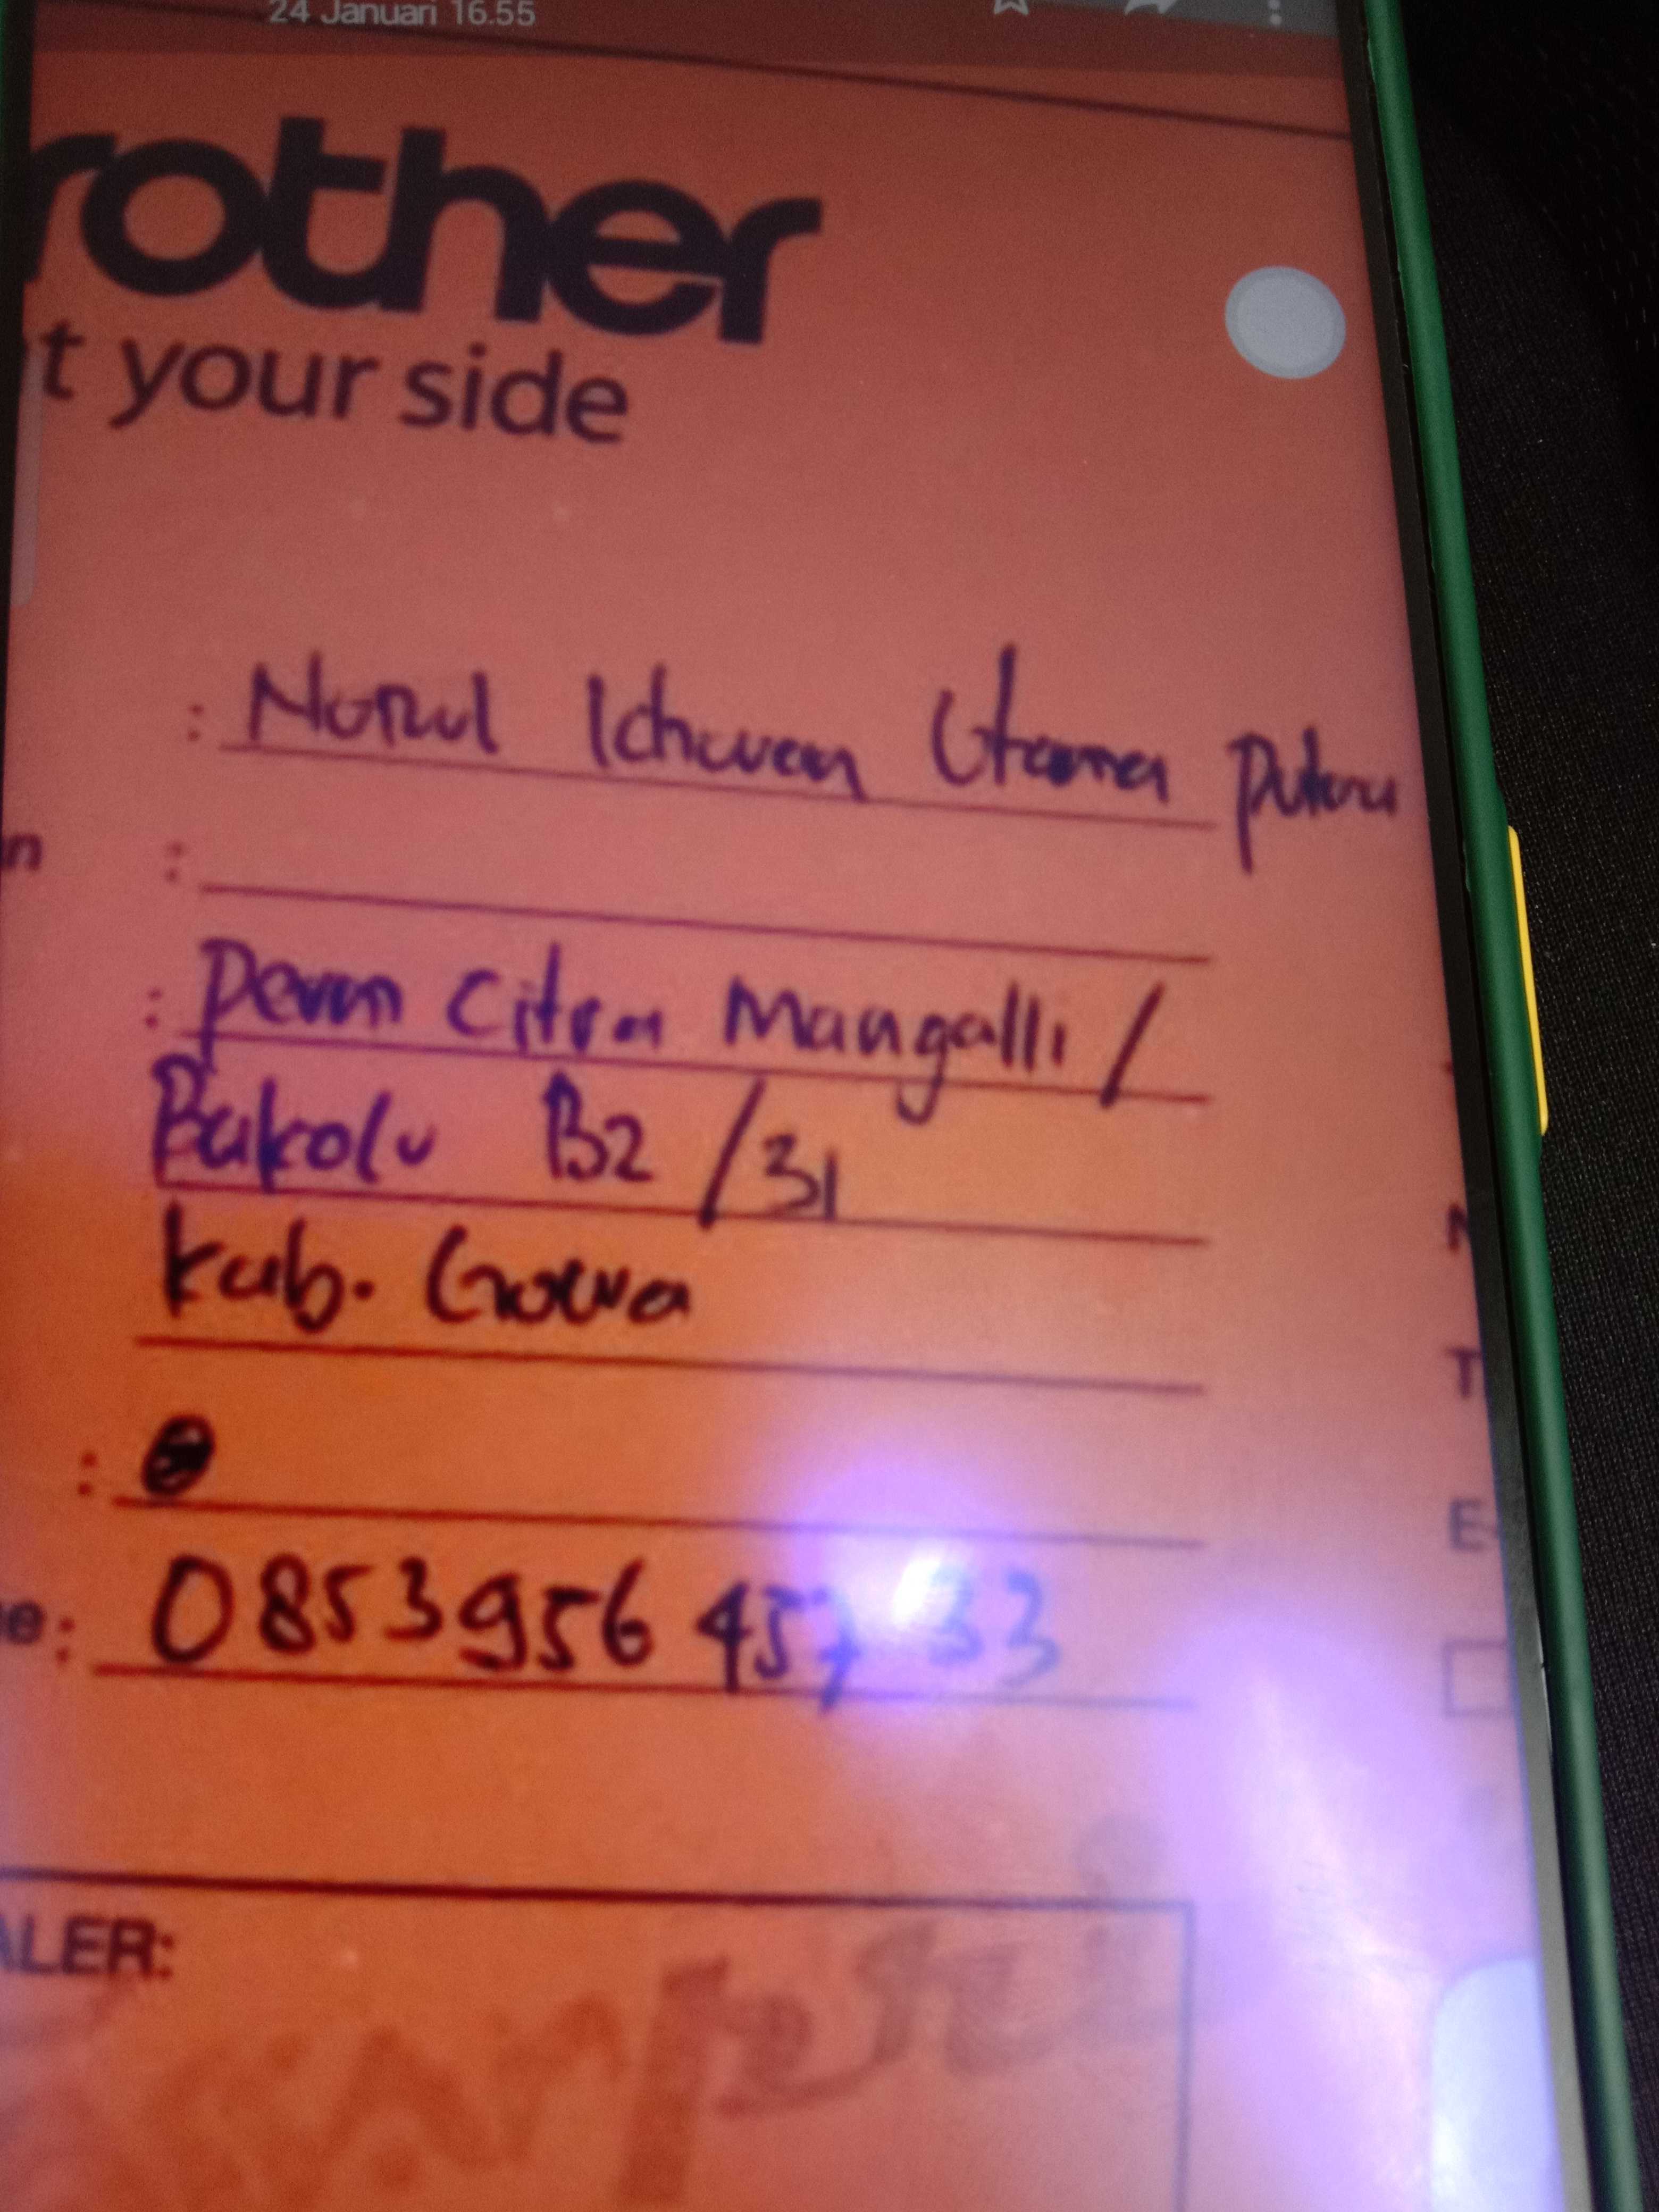 24 Januari 16.55
rother
t your side
: Nurul Ichwan Utama putra
n :
: perum Citra Mangalli /
Bakolu B2 /31
kab. Gowa
:
e: 0853 956 457 33
ALER:
N
T
E-